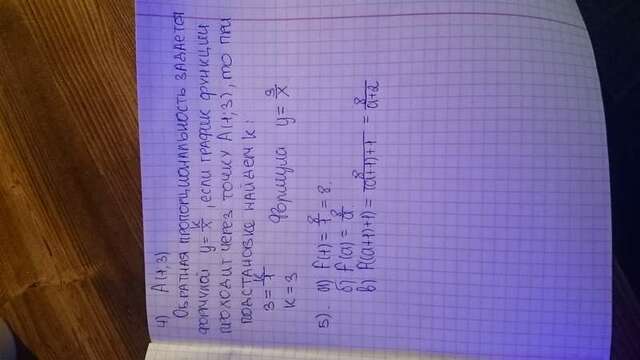 4) A(1,3)
Обратная пропорциональность задаётся
формулой y = k/x, если график функции
проходит через точку A(1;3), то при
подстановке найдём k:
3 = k/1
k = 3 Формула y = 3/x
5). а) f(1) = 8/1 = 8.
б) f(a) = 8/a.
в) f((a+1)+1) = 8/((a+1)+1) = 8/(a+2)